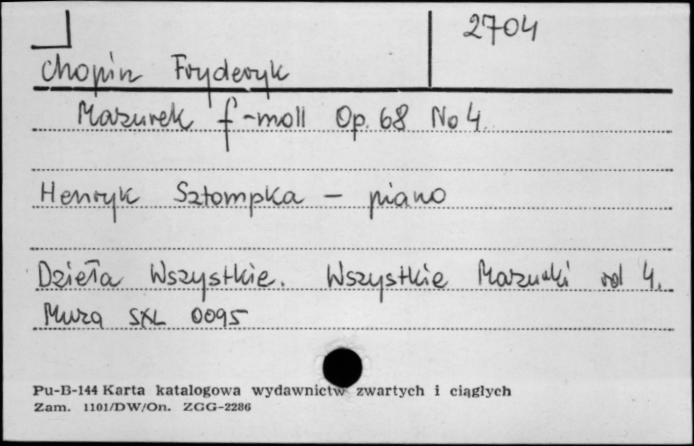 2704
Chopin Fryderyk
Mazurek f-moll Op. 68 No 4.
Henryk Sztompka - piano
Dzieła Wszystkie. Wszystkie Mazurki vol 4.
Muza SXL 0095
Pu-B-144 Karta katalogowa wydawnictw zwartych i ciągłych
Zam. 1101/DW/On. ZGG-2286